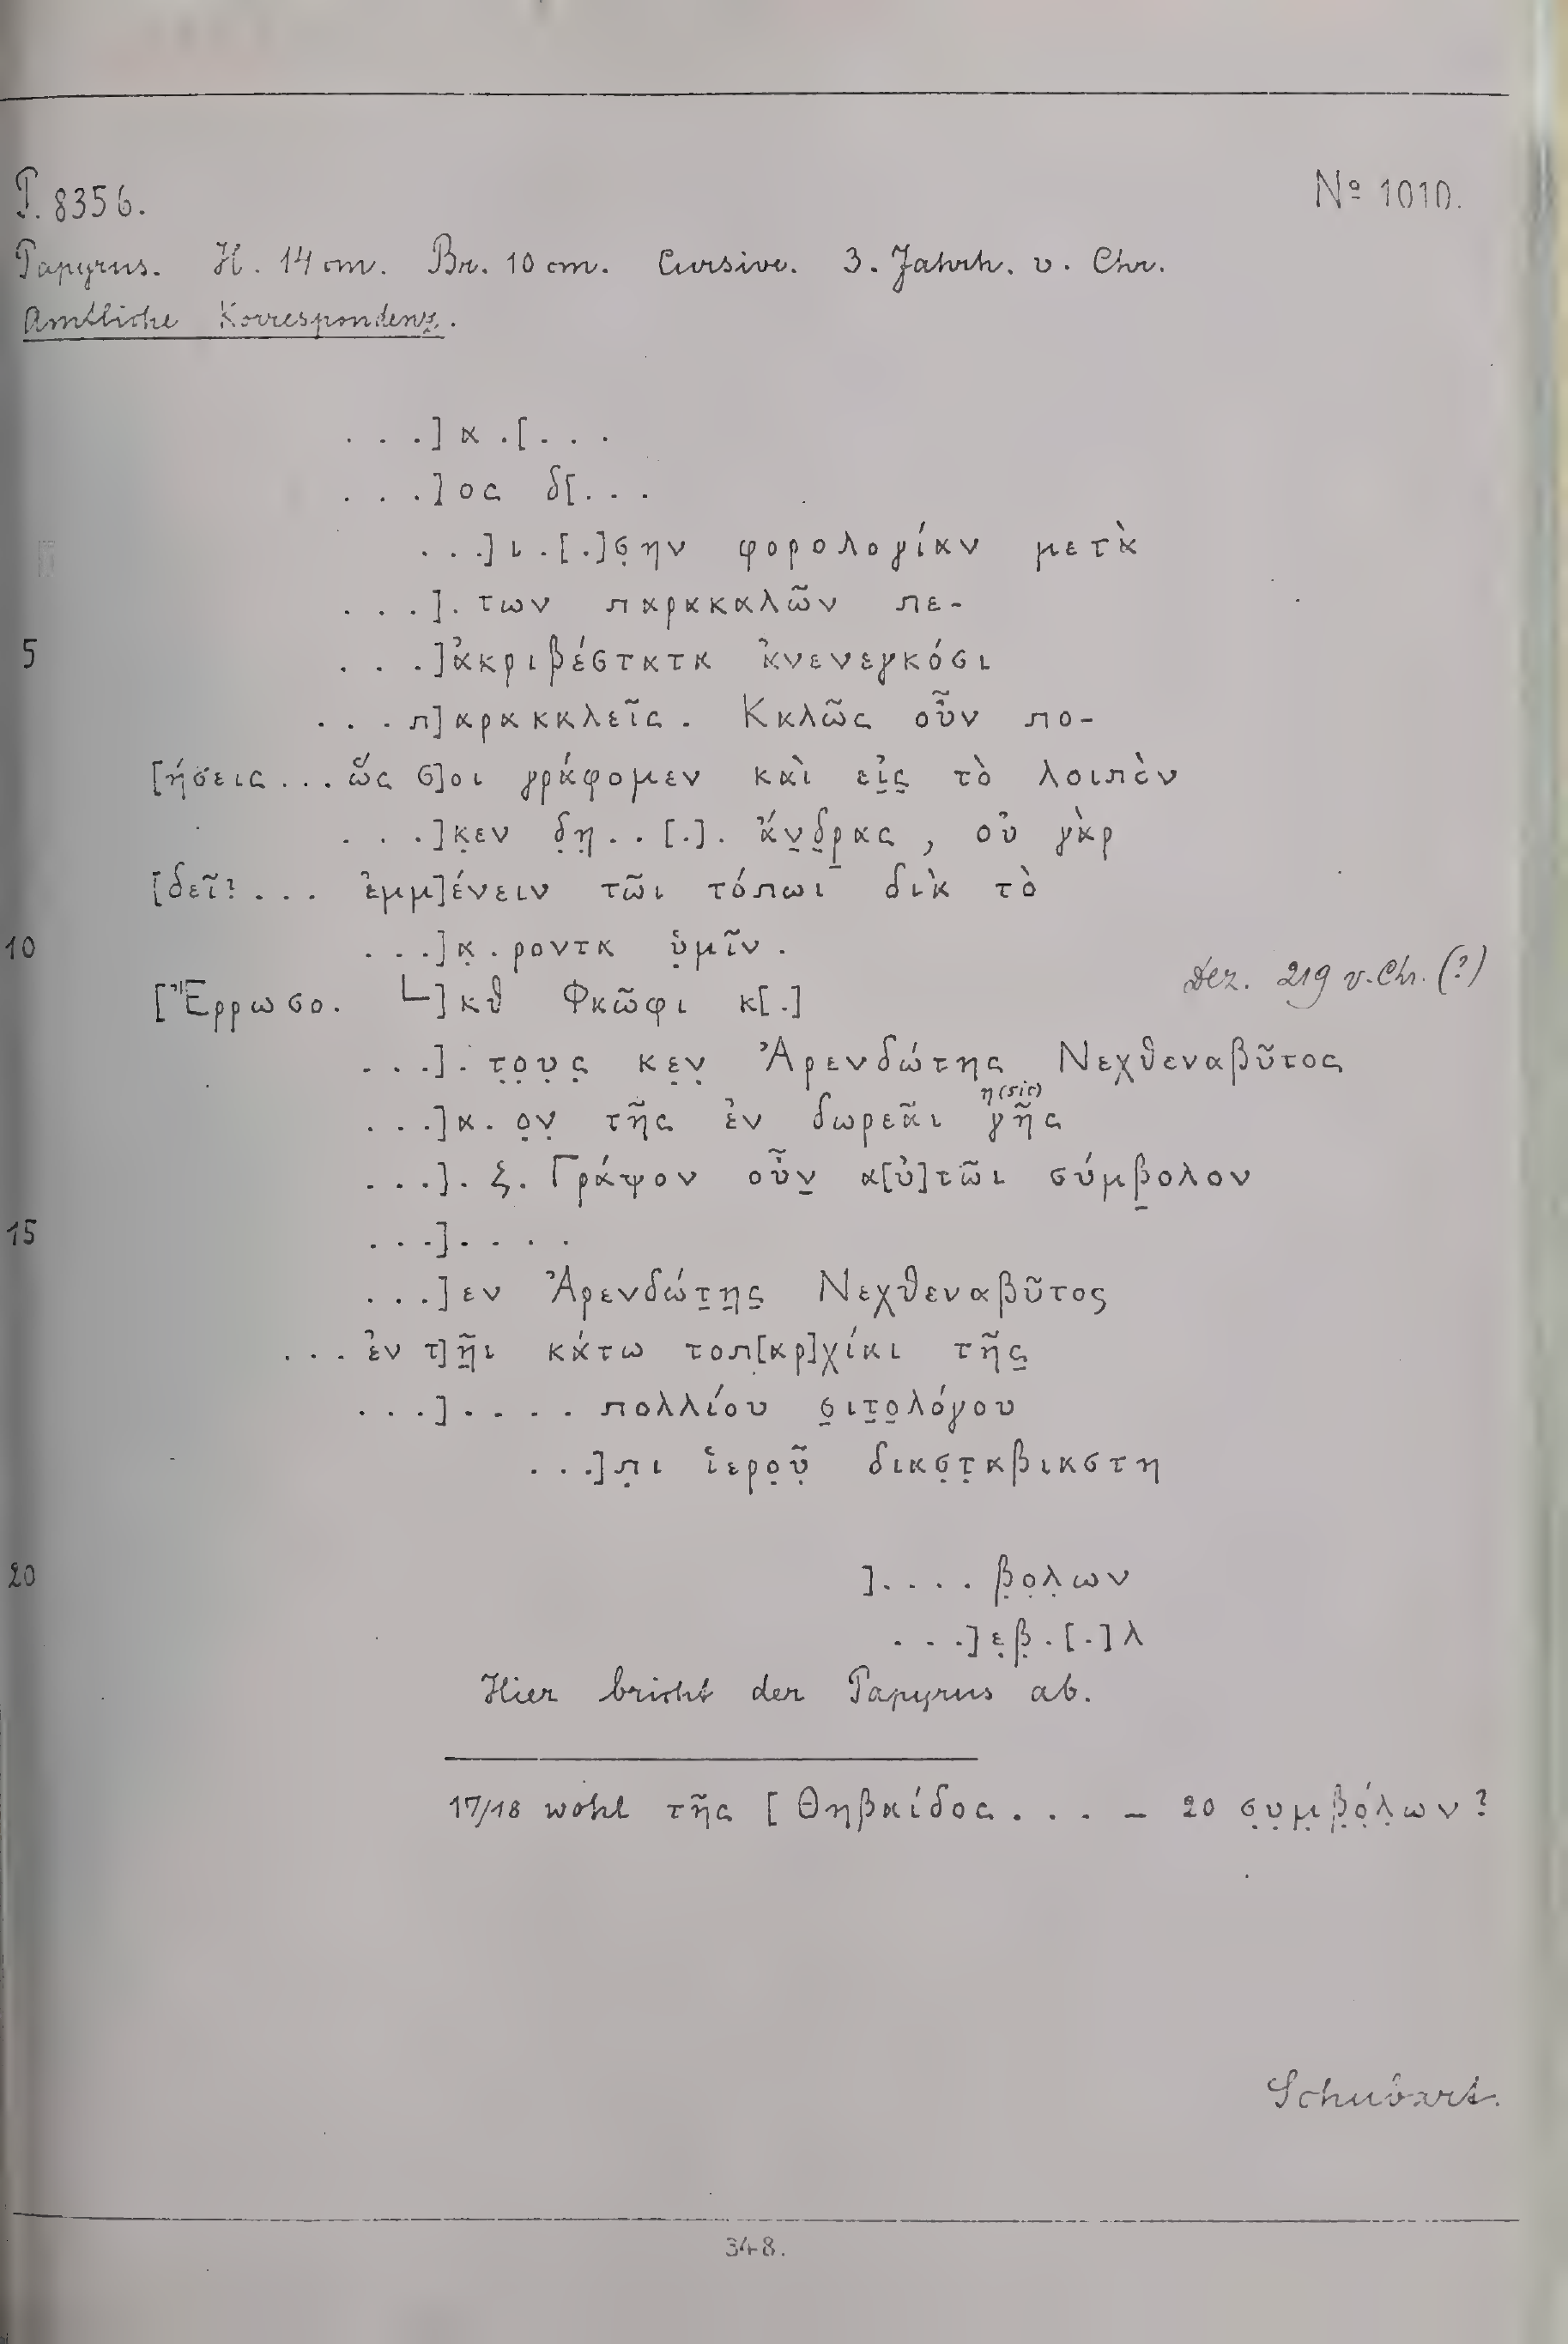 P. 8356. № 1010.
Papyrus. H. 14 cm. Br. 10 cm. Cursive. 3. Jahrh. v. Chr.
Amtliche Korrespondenz.
. . .] α .[. . .
. . .] ος δ[. . .
. . .] ι . [.]σ̣ην φορολογίαν μετὰ
. . .]. των παρακαλῶν πε-
5 . . .]ἀκριβέστατα ἀνενεγκόσι
. . . π]αρακαλεῖς. Καλῶς οὖν πο-
[ήσεις . . . ὥς σ]οι γράφομεν καὶ εἰ̣ς̣ τὸ λοιπὸν
. . .]κ̣εν δ̣η̣ . . [.] . ἄν̣δ̣ρ̣ας, οὐ γὰρ
[δεῖ? . . . ἐμμ]ένειν τῶι τόπωι διὰ τὸ
10 . . .]α̣ . ροντα ὑ̣μῖν.
[Ἔρρωσο. └] κθ Φαῶφι κ[.] Dez. 219 v. Chr. (?)
. . .] . τ̣ο̣υ̣ς̣ κε̣ν̣ Ἀρενδώτης Νεχθεναβῦτος
. . .]α . ο̣ν̣ τῆς ἐν δωρεᾶι γῆς η (sic)
. . .] . ξ. Γράψον οὖν̣ α[ὐ]τῶι σύμβ̣ολον
15 . . .] . . . .
. . .] εν Ἀρενδώτ̣η̣ς̣ Νεχθεναβῦτος
. . . ἐν τ]ῆ̣ι κάτω τοπ[αρ]χίαι τῆς̣
. . .] . . . . πολλίου σ̣ιτ̣ο̣λόγου
. . .]π̣ι ἱερο̣ῦ̣ διασ̣τ̣αβιαστη
20 ] . . . . β̣ο̣λ̣ων
. . .] ε̣β̣ . [.] λ
Hier bricht der Papyrus ab.
17/18 wohl τῆς [Θηβαίδος . . . – 20 σ̣υ̣μ̣β̣ό̣λ̣ων?
Schubart.
348.